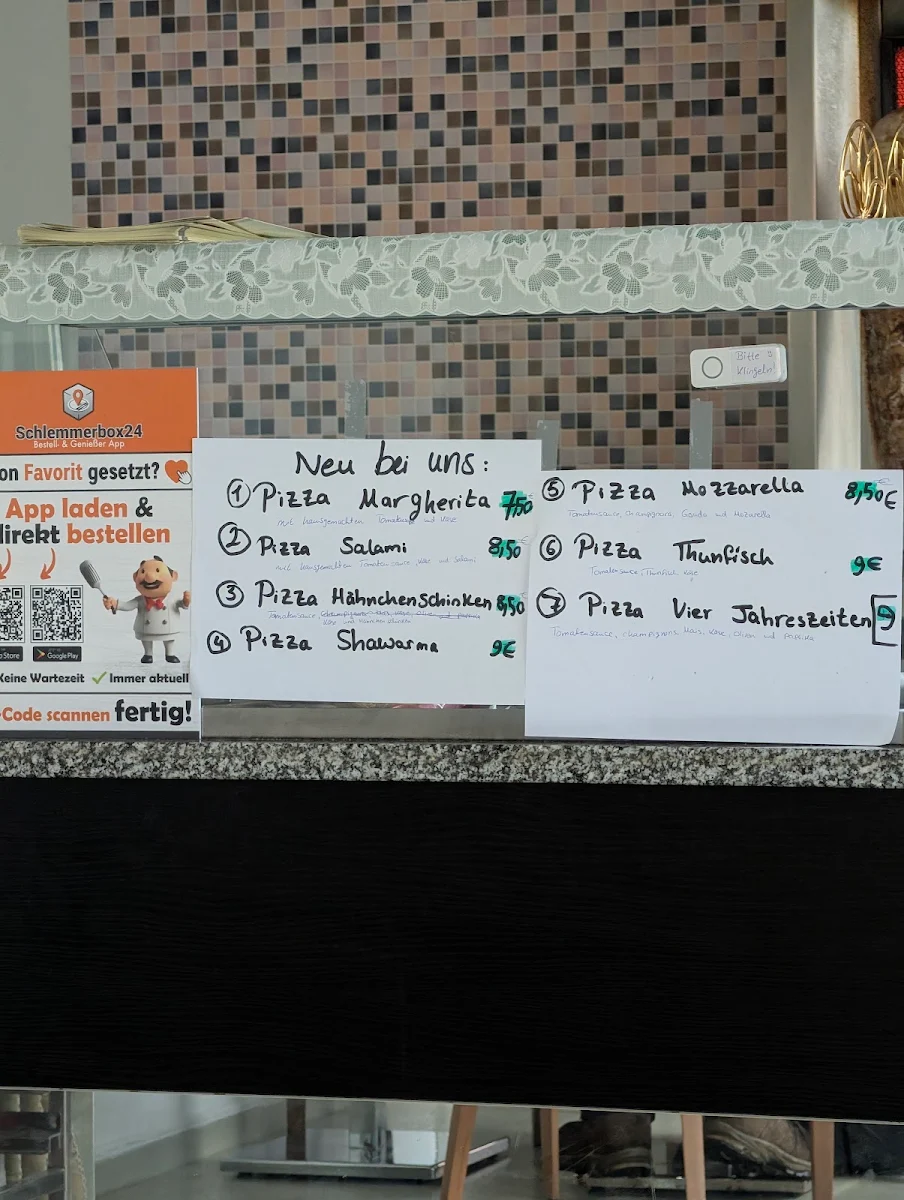 Schlemmerbox24
Bestell- & Genießer App
on Favorit gesetzt?
App laden &
direkt bestellen
Store
Google Play
Keine Wartezeit ✓ Immer aktuell
-Code scannen fertig!
Neu bei uns:
① Pizza Margherita 7,50
mit hausgemachten Tomatensauce und Käse
② Pizza Salami 8,50
mit hausgemachten Tomatensauce, Käse und Salami
③ Pizza Hähnchenschinken 8,50
Tomatensauce,
Käse und Hähnchenschinken
④ Pizza Shawarma 9€
⑤ Pizza Mozzarella 8,50€
Tomatensauce, Champignons, Gouda und Mozarella
⑥ Pizza Thunfisch 9€
Tomatensauce, Thunfisch, Käse
⑦ Pizza Vier Jahreszeiten 9
Tomatensauce, champignons, Mais, Käse, Oliven und Paprika
Bitte
Klingeln!